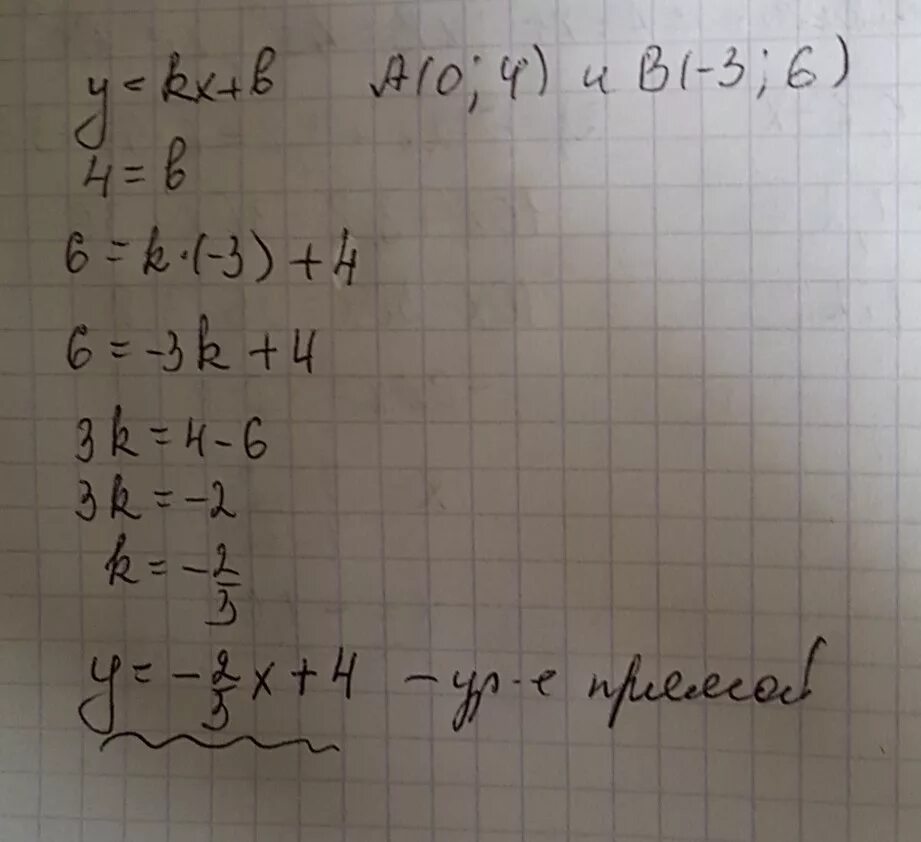 y = kx + b A(0; 4) и B(-3; 6)
4 = b
6 = k·(-3) + 4
6 = -3k + 4
3k = 4 - 6
3k = -2
k = -2/3
y = -2/3x + 4 - ур-е прямой